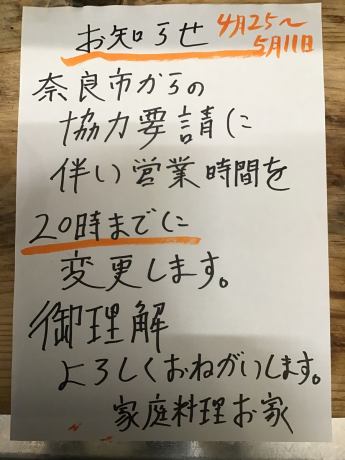 お知らせ 4月25〜
5月11日
奈良市からの
協力要請に
伴い営業時間を
20時までに
変更します。
御理解
よろしくおねがいします。
家庭料理お家